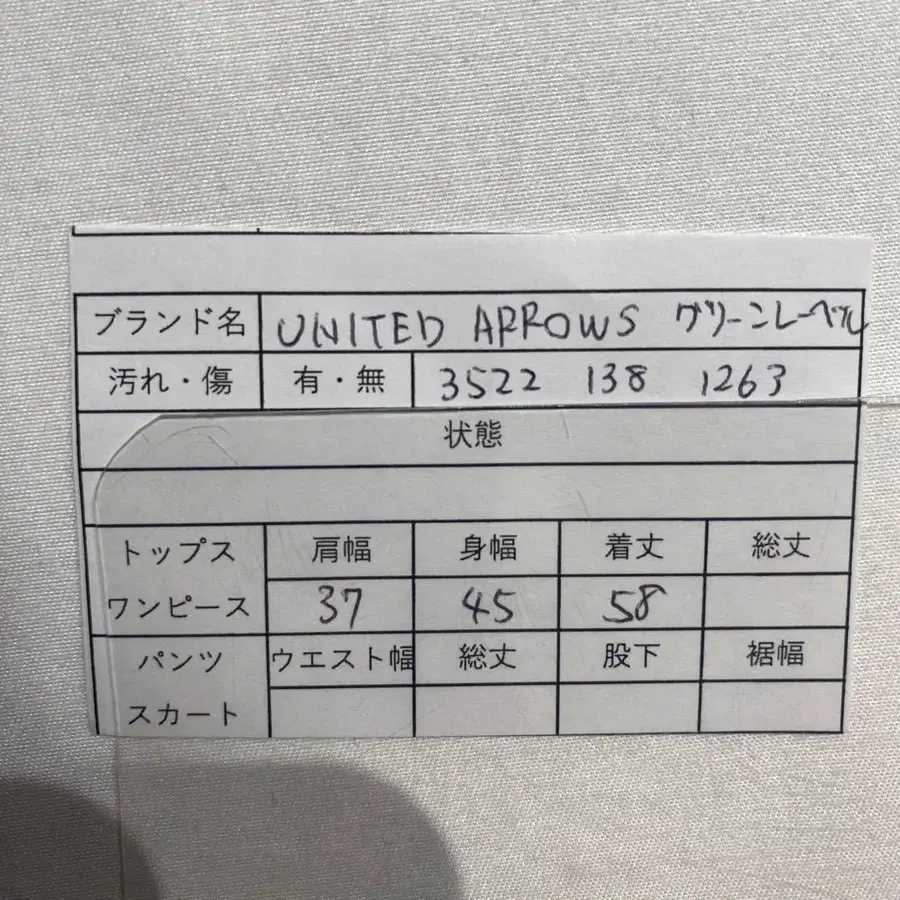 ブランド名 UNITED ARROWS グリーンレーベル
汚れ・傷 有・無 3522 138 1263
状態
トップス 肩幅 身幅 着丈 総丈
ワンピース 37 45 58
パンツ ウエスト幅 総丈 股下 裾幅
スカート